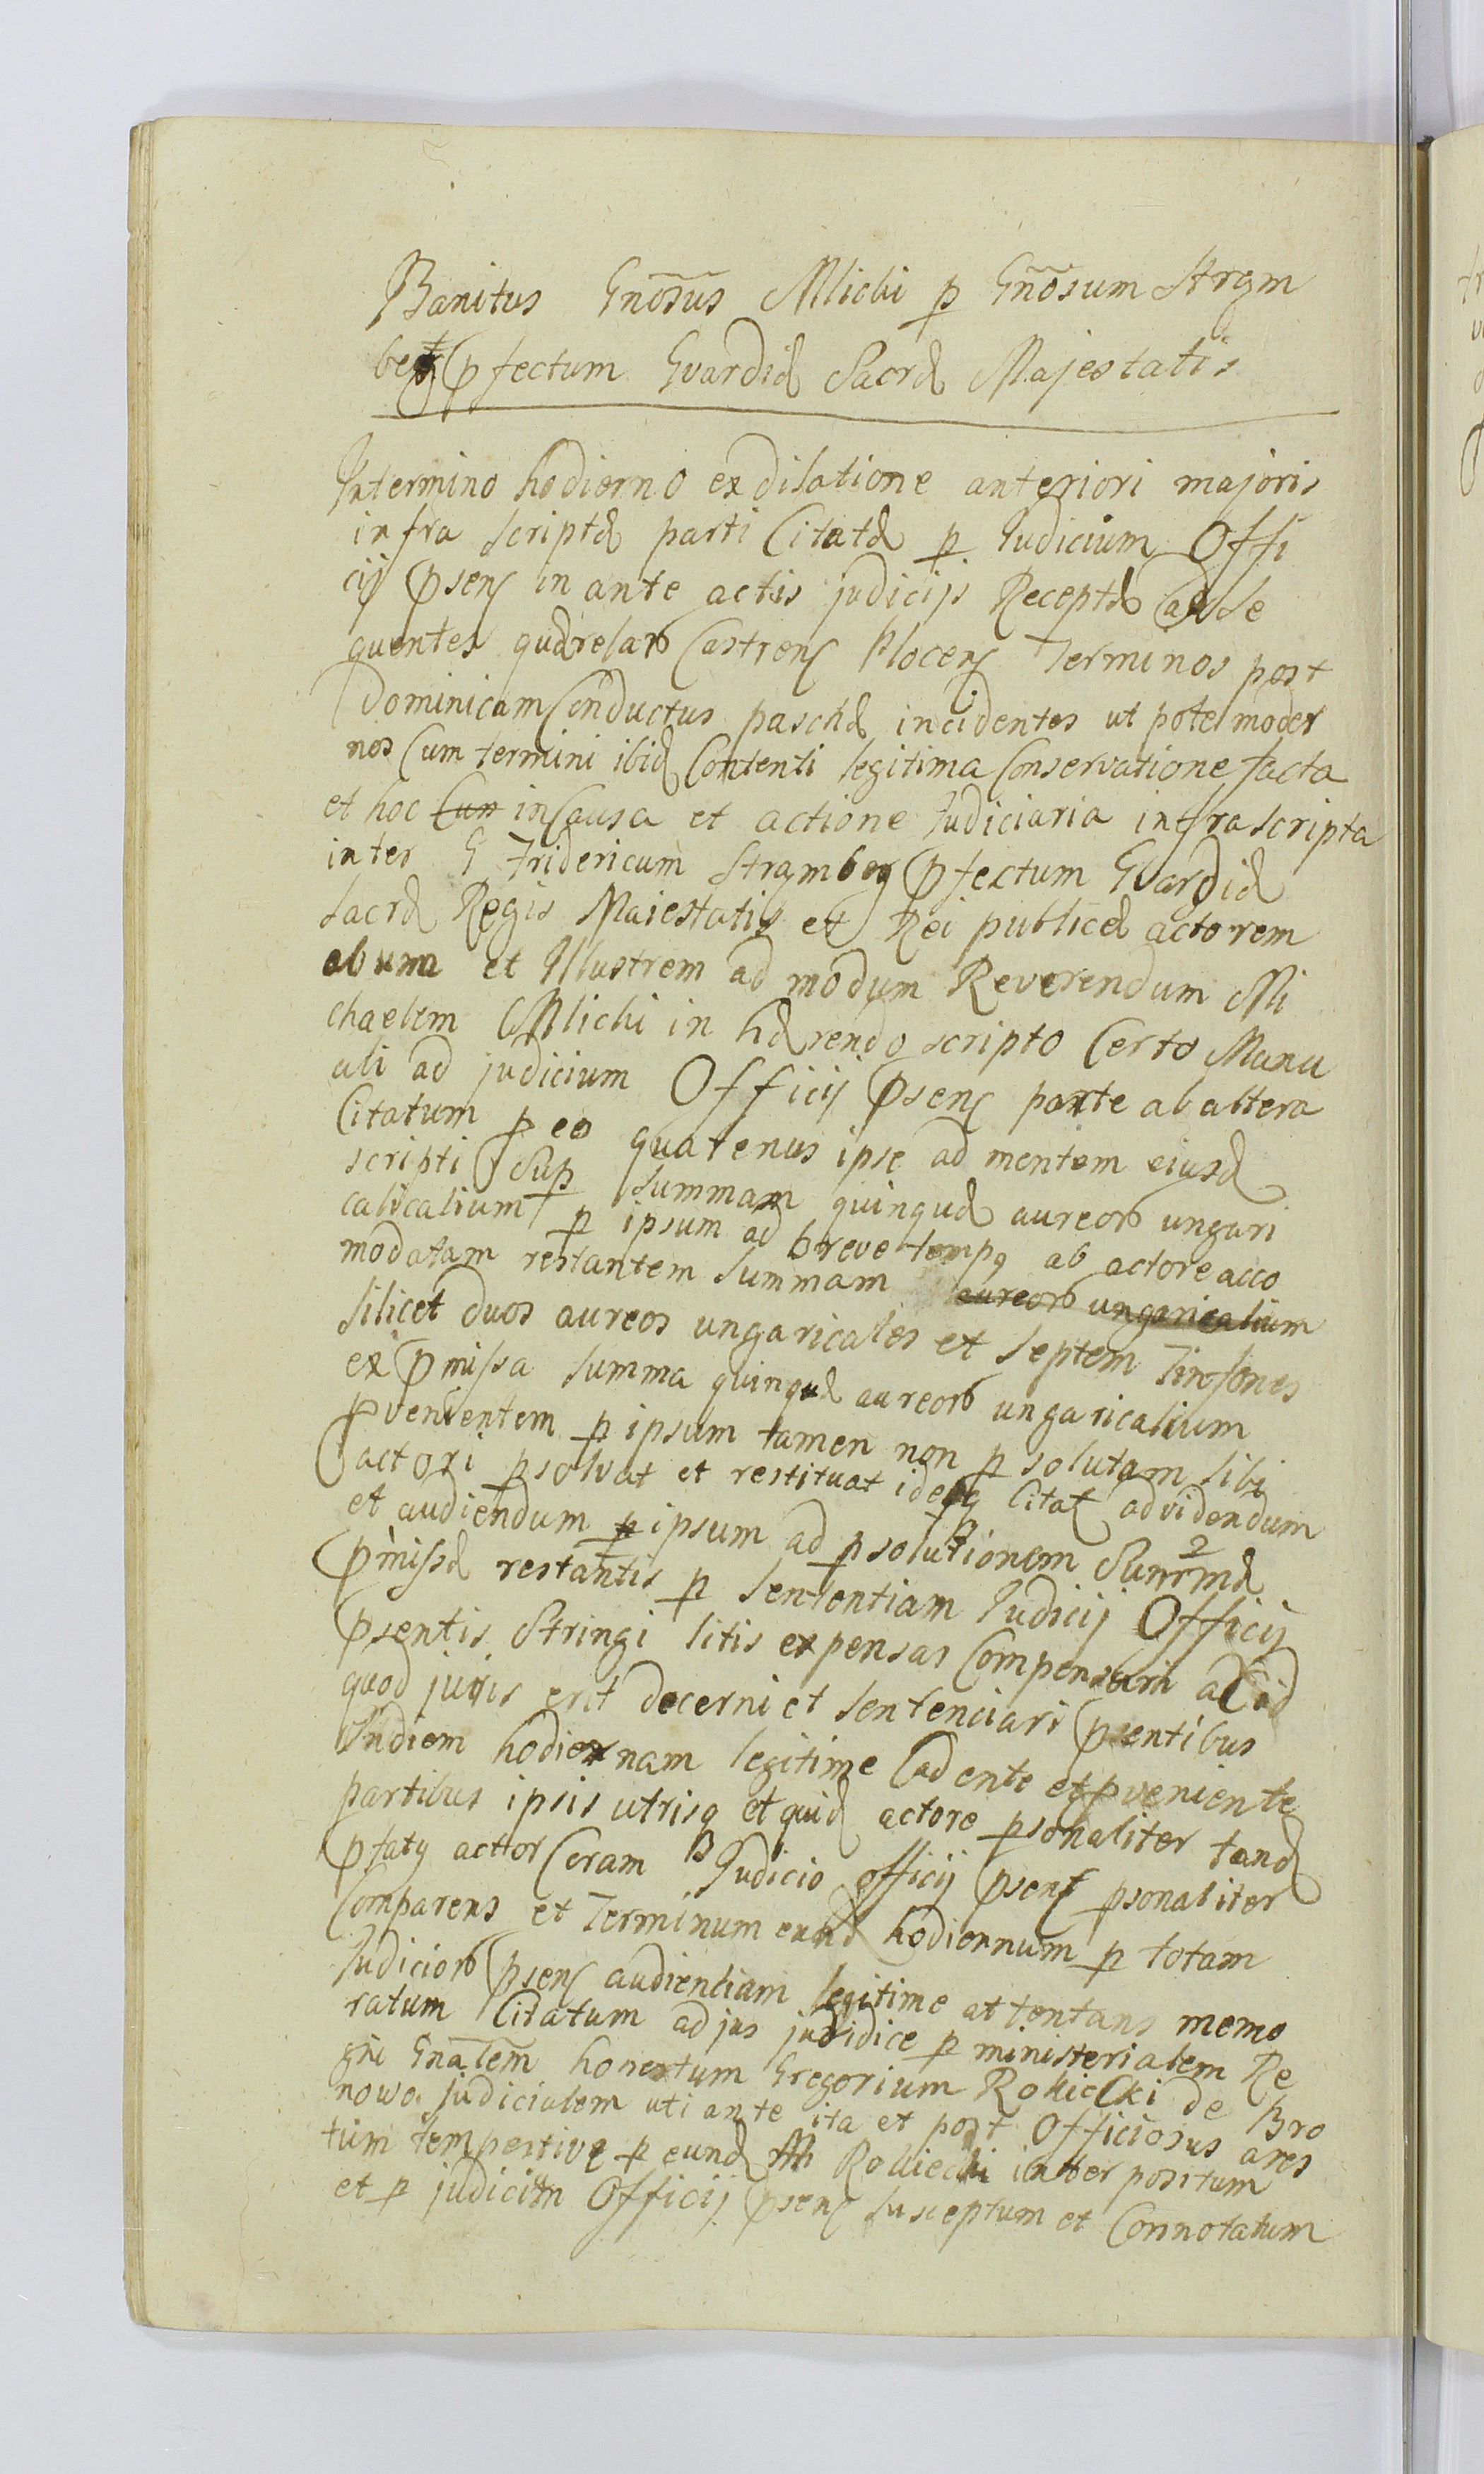 Banitus Gnosus Mlicki p Gnosum Strgm
berg Pfectum Gvardiæ Sacræ Majestatis
In termino hodierno ex dilatione anteriori majoris
infra scriptæ parti Citatæ p Judicium Offi
cij psens in ante actis judicijs Receptæ ad se
quentes quærelarū Castrens Plocens Terminos post
Dominicam Conductus paschæ incidentes ut pote moder
nos Cum termini ibid Contenti legitima Conservatione facta
et hoc Cum in Causa et actione Judiciaria infra scripta
inter G Fridericum Strgmberg Pfectum Gvardiæ
Sacræ Regis Maiestatis et Rei publicæ actorem
ab una et Illustrem ad modum Reverendum Mi
chaelem Mlicki in hærendo scripto Certo Manu
ali ad judicium Officij psens parte ab altera
Citatum p eo quatenus ipse ad mentem eiusd
scripti Sup summam quinquæ aureorū ungari
calicalium p ipsum ad breve tempq ab actore acco
modatam restantem summam aureorū ungaricalium
silicet duos aureos ungaricales et septem Tinfones
ex pmissa summa quinquæ aureorū ungaricalium
pvenientem p ipsum tamen non p solutam sibi
actori psolvat et restituat ideoq Citat ad videndum
et audiendum p ipsum ad p solutionem Summæ
pmissæ restantis p sententiam Judicij Officij
psentis Stringi litis expensas Compensari ac id
quod juris erit decerni et sentenciari psentibus
In diem hodiernam legitime Cadente et pveniente
partibus ipsis utrisq et quid actore psonaliter tand
pfatq acttor Coram Judicio officij psens psonaliter
Comparens et Terminum eund hodiernum p totam
Judiciorū psens audientiam legitime attentans memo
ratum Citatum ad jus juridice p ministerialem Re
gni Gnalem honestum Gregorium Rokicki de Bro
nowo judicialem uti ante ita et post Officiosus ares
tum tempestive p eund Rokiecki inter positum
et p judicium Officij psens susceptum et Connotatum